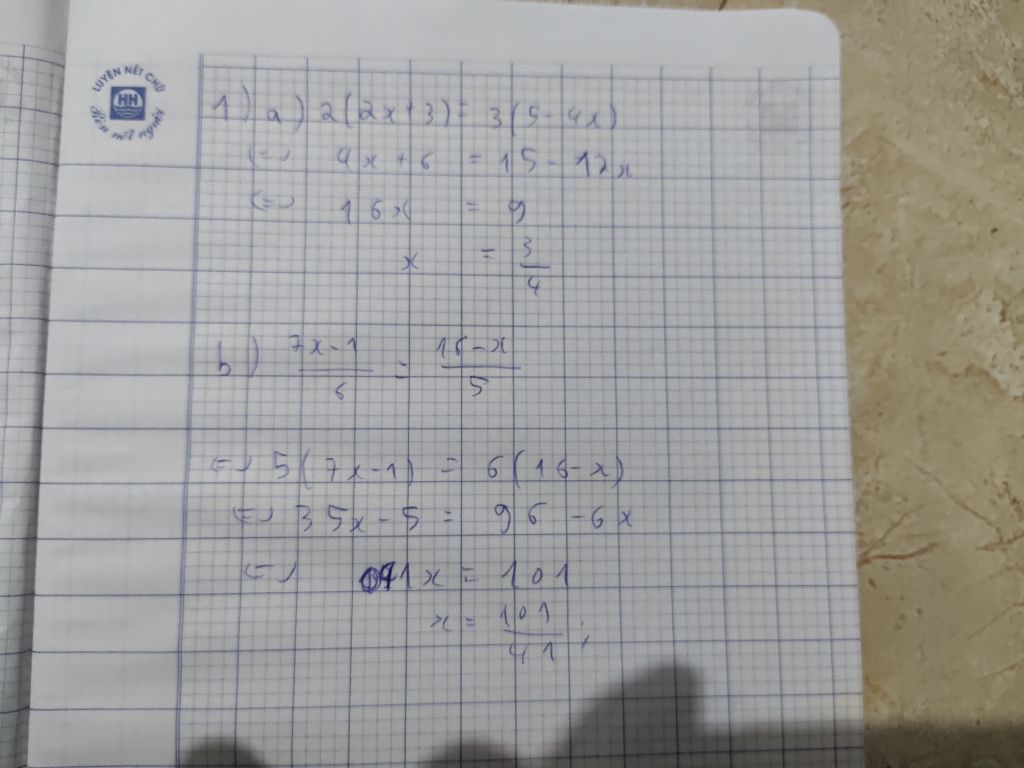 LUYỆN NÉT CHỮ
HH
Rèn nết người
1) a) 2(2x+3) = 3(5-4x)
<=> 4x+6 = 15-12x
<=> 16x = 9
x = 3/4
b) 7x-1/6 = 16-x/5
<=> 5(7x-1) = 6(16-x)
<=> 35x-5 = 96-6x
<=> 41x = 101
x = 101/41;